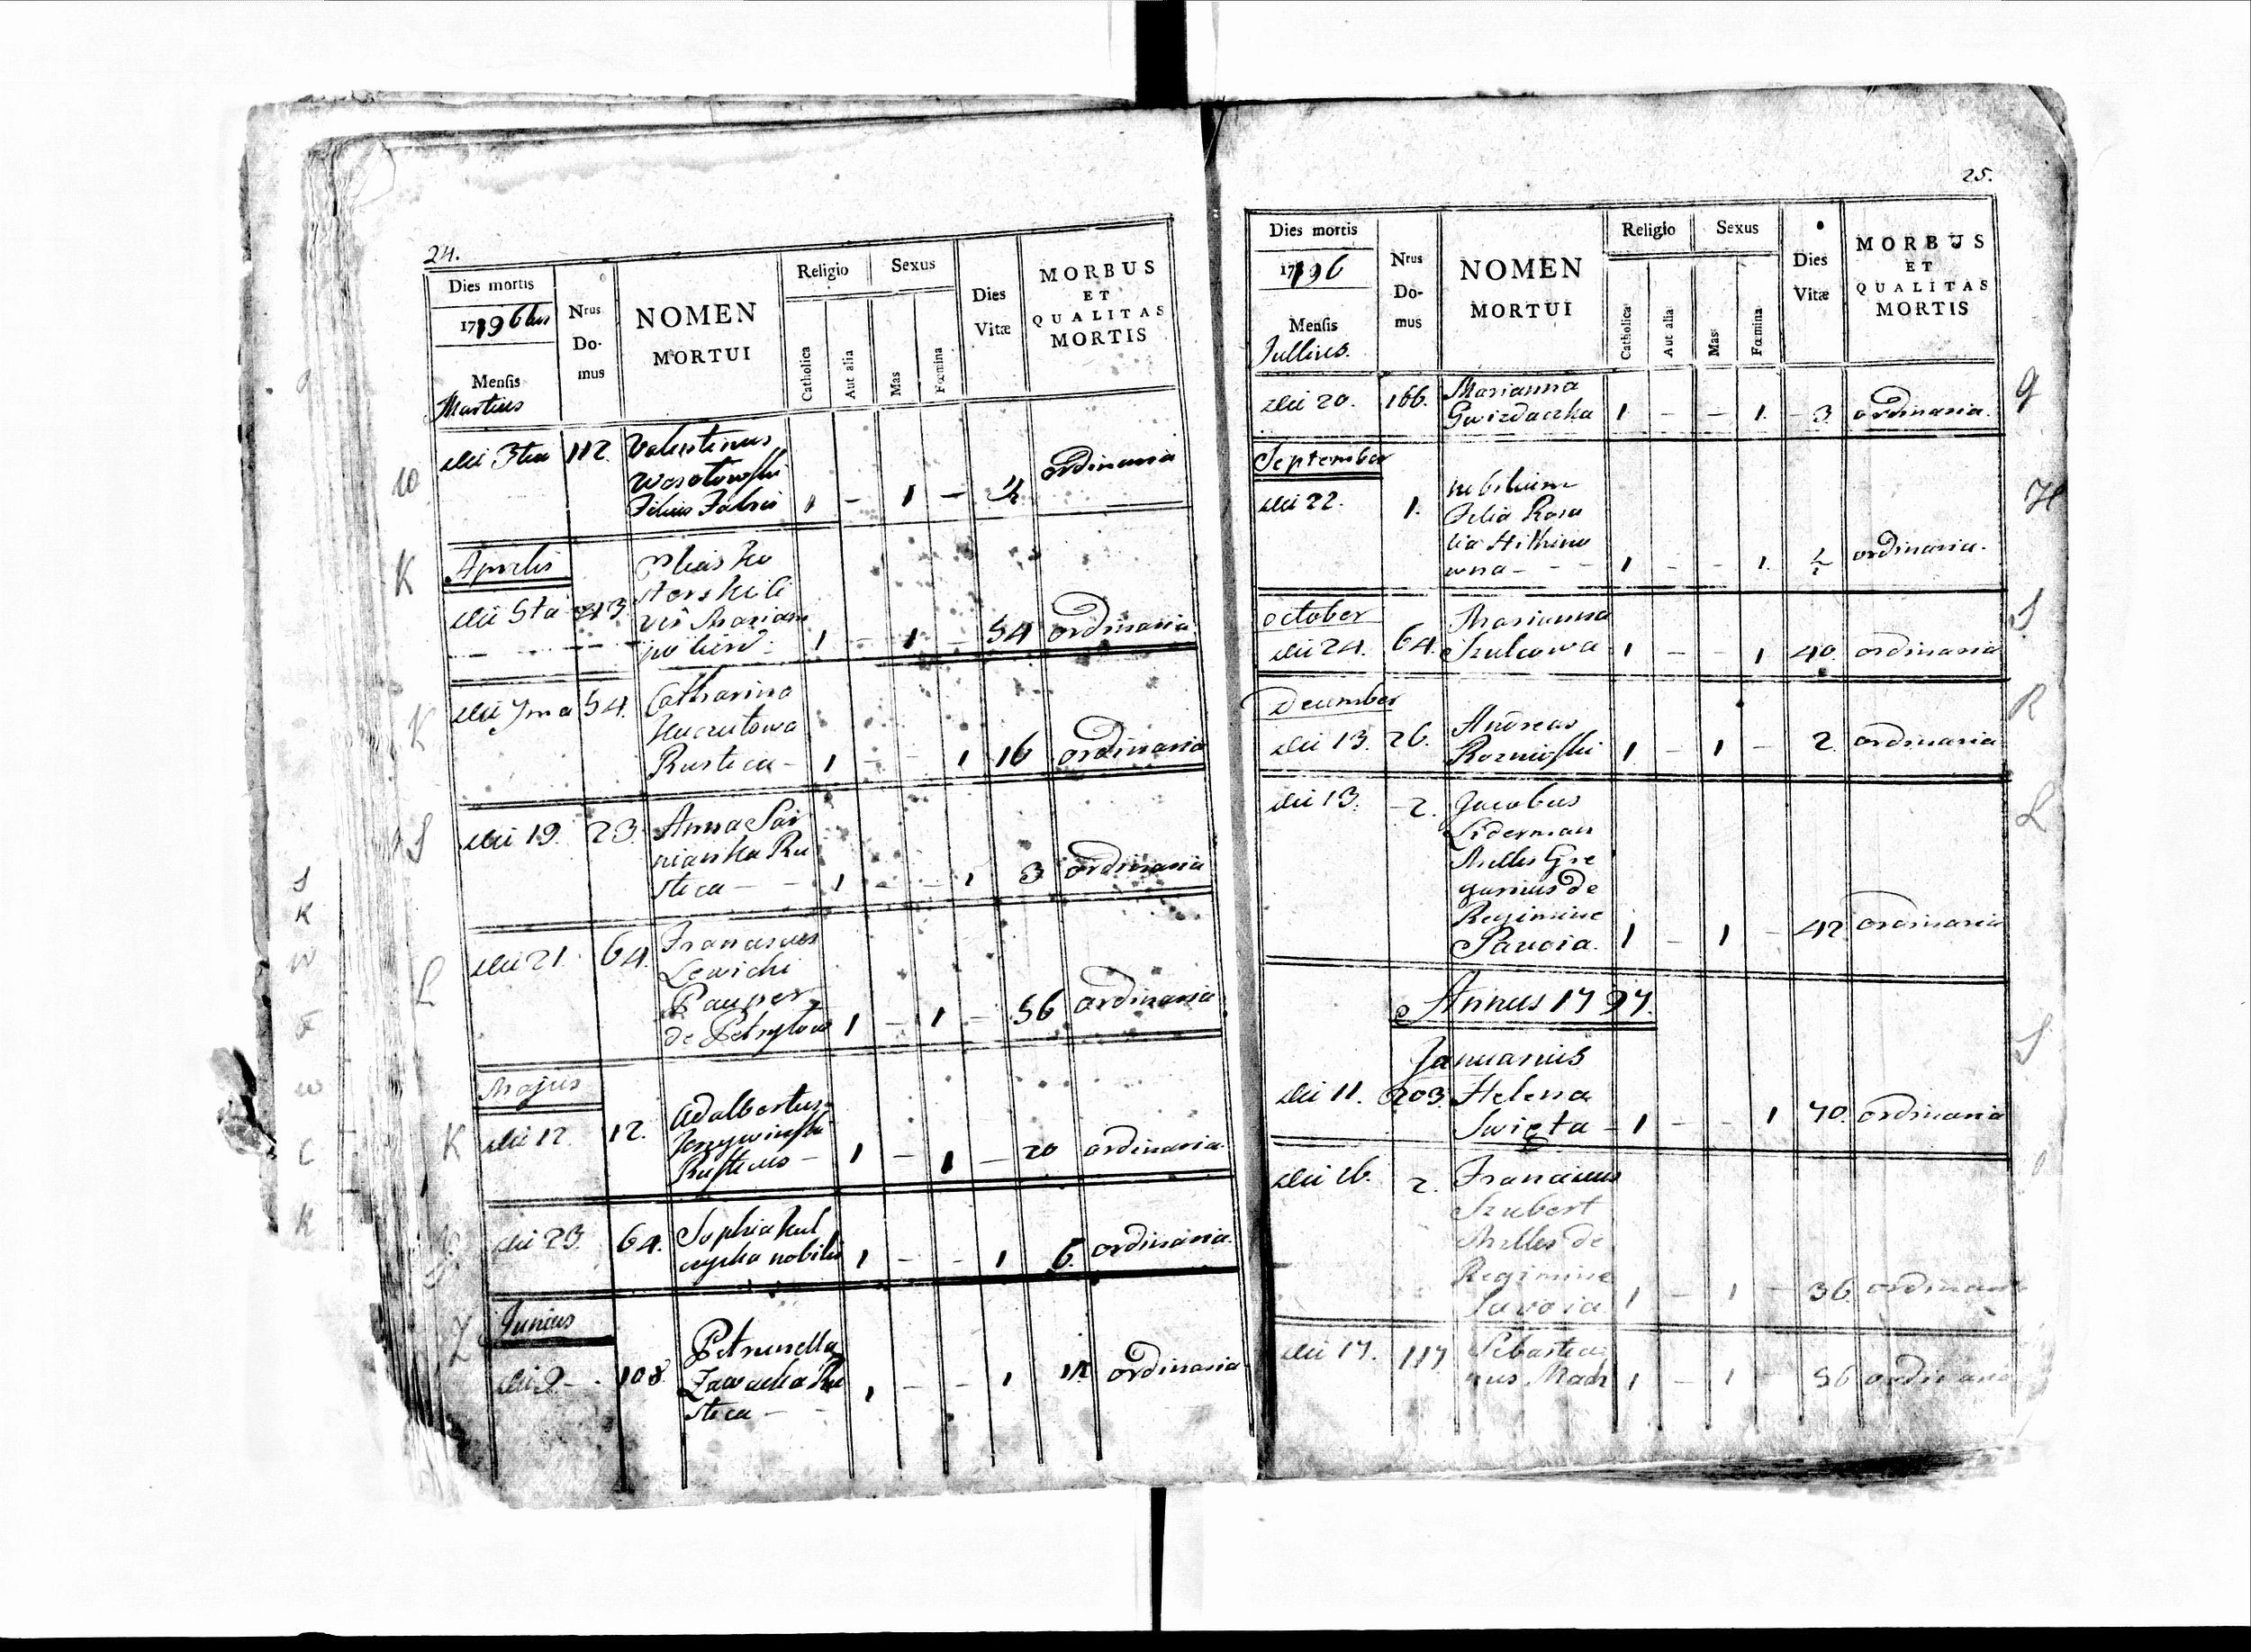 24.
Dies mortis
1796
Mensis
Martius
Nrus
Do-
mus
NOMEN
MORTUI
Religio
Catholica
Aut alia
Sexus
Mas
Fœmina
Dies
Vitæ
MORBUS
ET
QUALITAS
MORTIS
W
die 3tia 112. Valentinus
Filius Fabri 1 - 1 - ordinaria
K
Aprilis
die 5ta
1 - 1 - 54 ordinaria
K
die 7ma 54. Catharina
Rustica - 1 - - 1 16 ordinaria
S
die 19. 23. Anna Sar
nianka Ru
stica - - 1 - - 1 3 ordinaria
L
die 21. 64. Franciscus
Lewicki
Pauper
de 1 - 1 - 56 ordinaria
Majus
K
die 12. 12. Adalbertus
Krzywinski
Rusticus - 1 - 1 - 20 ordinaria.
die 23. 64. Sophia Kul
nobilis 1 - - 1 6. ordinaria.
Z
Junius
die 9 - . 108. Petrunella
Zawacka Ru 1 - - 1 ordinaria
stica - -
25.
Dies mortis
1796
Mensis
Jullius.
Nrus
Do-
mus
NOMEN
MORTUI
Religio
Catholica
Aut alia
Sexus
Mas
Fœmina
Dies
Vitæ
MORBUS
ET
QUALITAS
MORTIS
die 20. 166. Marianna
Gwizdaczka 1. - - 1. - 3. ordinaria. G
September
die 22. 1. nobilium
Filia Rosa
lia
wna - - - 1 - - 1. ordinaria. H
October
die 24. 64. Marianna
Szulcowa 1 - - 1 40. ordinaria S
December
die 13. 26. Andreas
Roznioski 1 - 1 - 2. ordinaria R
die 13. 2. Jacobus
Liderman
Milles Gre
garius de
Regimine
Savoia. 1 - 1 - 42 ordinaria L
Annus 1797.
Januarius
die 11. 203. Helena
Swięta - 1 - - 1 70. ordinaria S
die 16. 2. Franciscus
Szubert
Milles de
Regimine
Savoia 1 - 1 - 36 ordinaria
die 17. 117 Sebastia
nus Mach 1 - 1 - 56 ordinaria